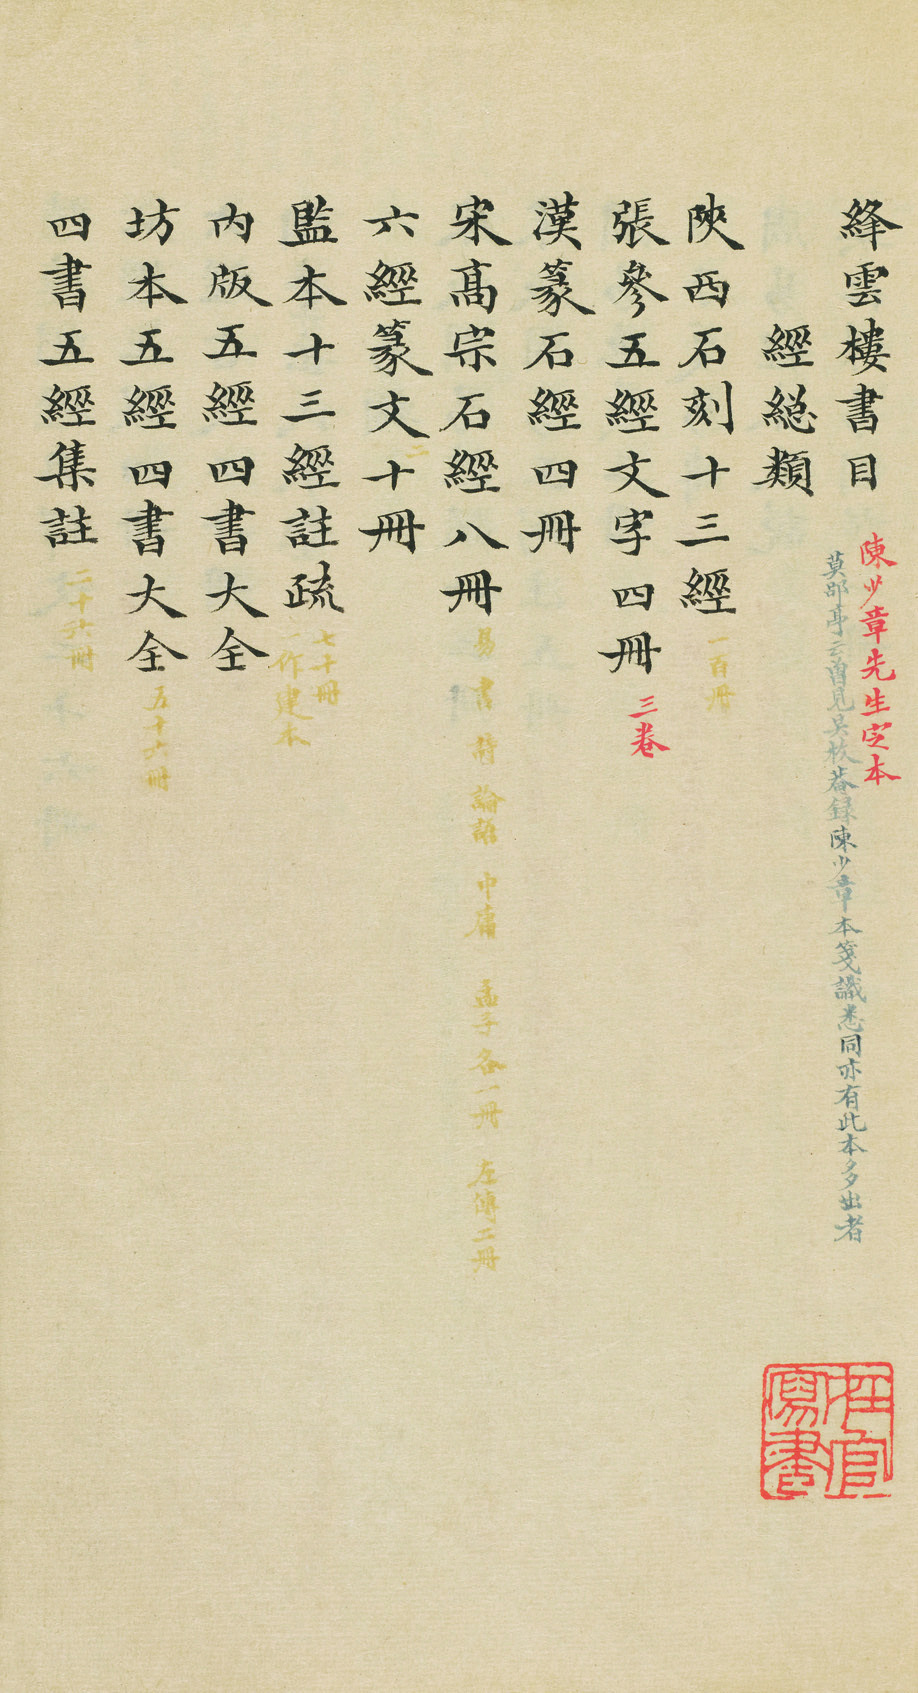 絳雲樓書目
陳少章先生定本
莫郘亭云酉見吳枚菴録陳少章本箋識悉同亦有此本多出者
經總類
陝西石刻十三經
一百冊
張參五經文字四冊
三卷
漢篆石經四冊
宋髙宗石經八冊
易 書 詩 論語 中庸 孟子各一冊 左傳二冊
六經篆文十冊
二
監本十三經註疏
七十冊
一作建本
内版五經四書大全
坊本五經四書大全
五十六冊
四書五經集註
二十六冊
寫書